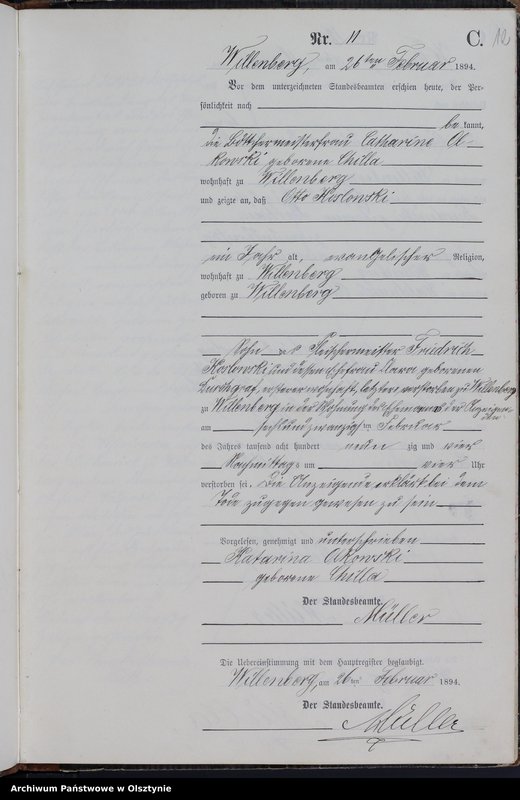 Nr. 11 C. 12
Willenberg, am 26ten Februar 1894.
Vor dem unterzeichneten Standesbeamten erschien heute, der Per-
sönlichkeit nach
be kannt,
die Böttchermeisterfrau Catharine
kowski geborene Chilla
wohnhaft zu Willenberg
und zeigte an, daß Otto Koslowski
ein Jahr alt, evangelischer Religion,
wohnhaft zu Willenberg
geboren zu Willenberg
Sohn des Fleischermeister Friedrich
Koslowski und dessen Ehefrau geborenen
Burchgraf, ersterer wohnhaft, letztere verstorben zu Willenberg
zu Willenberg in der Wohnung des Ehemanns der Anzeigen-
den
am sechsundzwanzigsten Februar
des Jahres tausend acht hundert neun zig und vier
Nachmittags um vier Uhr
verstorben sei. Die Anzeigende erklärt bei dem
Tode zugegen gewesen zu sein
Vorgelesen, genehmigt und unterschrieben
Katarina Okowski
geborene Chilla
Der Standesbeamte.
Müller
Die Uebereinstimmung mit dem Hauptregister beglaubigt.
Willenberg, am 26ten Februar 1894.
Der Standesbeamte.
Müller
Archiwum Państwowe w Olsztynie